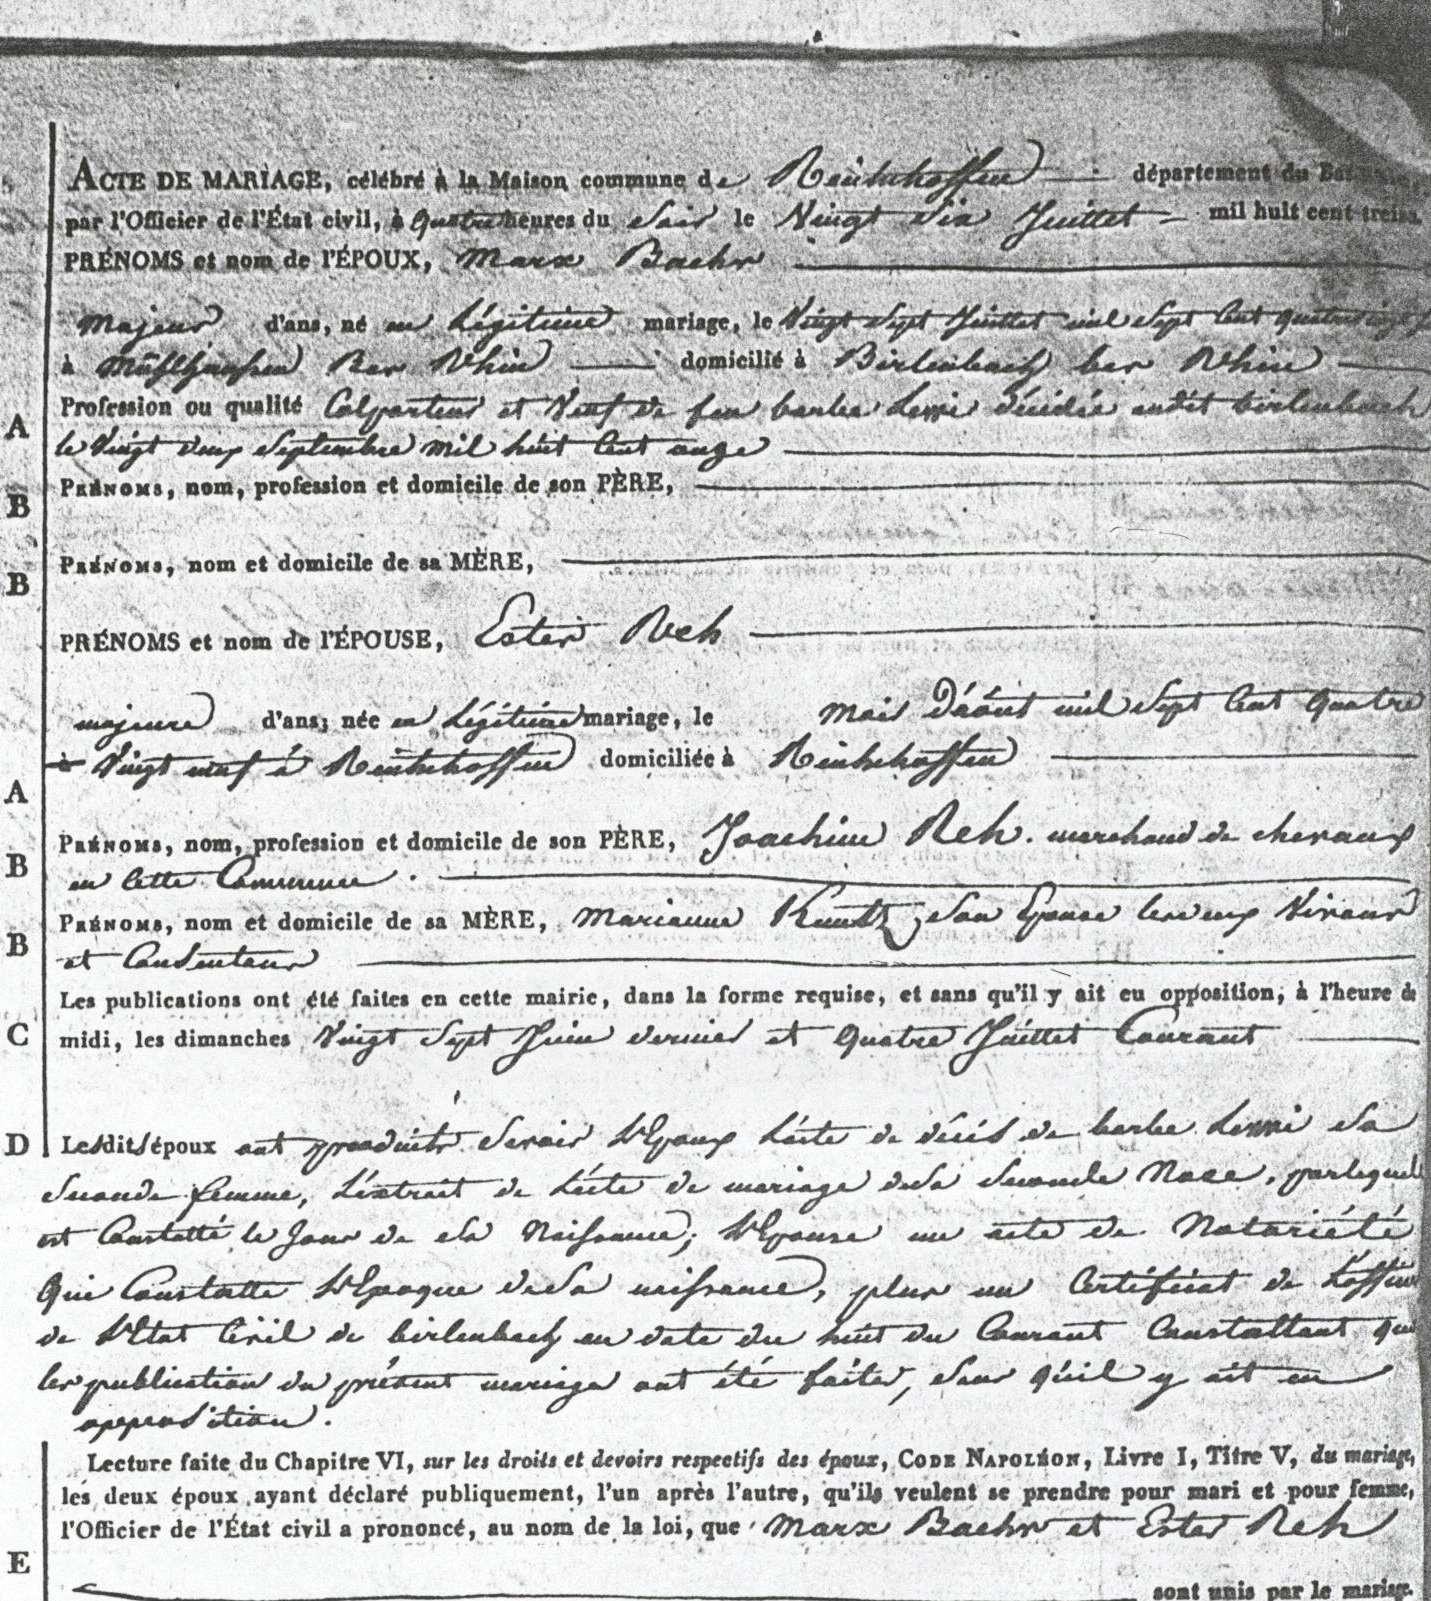 ACTE DE MARIAGE, célébré à la Maison commune de Reichshoffen département du Bas
par l'Officier de l'État civil, à quatre heures du Soir le Vingt Six Juillet mil huit cent treize
PRÉNOMS et nom de l'ÉPOUX, Marx Baehr
Majeur d'ans, né en Légitime mariage, le Vingt Sept Juillet mil Sept Cent quatre vingt
à Bas Rhin domicilié à Birlenbach bas Rhin
A
Profession ou qualité Colporteur et Veuf de feu barbe Lewi décédée audit birlenbach
le Vingt deux Septembre mil huit Cent onze
B
PRÉNOMS, nom, profession et domicile de son PÈRE,
B
PRÉNOMS, nom et domicile de sa MÈRE,
PRÉNOMS et nom de l'ÉPOUSE, Ester Reh
majeure d'ans; née en Légitime mariage, le mois D'août mil Sept Cent Quatre
à Vingt neuf à Reichshoffen domiciliée à Reichshoffen
A
B
PRÉNOMS, nom, profession et domicile de son PÈRE, Joachim Reh. marchand de chevaux
en Cette Commune.
B
PRÉNOMS, nom et domicile de sa MÈRE, Marianne Kuntz, Son Epouse les deux Vivans
et Consentans
Les publications ont été faites en cette mairie, dans la forme requise, et sans qu'il y ait eu opposition, à l'heure de
C
midi, les dimanches Vingt Sept Juin dernier et Quatre Juillet Courant
D
Lesdits époux ont produits Savoir L'Epoux L'acte de décès de barbe Lewi Sa
Seconde femme, L'extrait de L'acte de mariage de Sa Seconde Noce, par lequel
est Constatté le Jour de Sa Naissance; L'Epouse un acte de Notariété
Qui Constatte L'Epoque de Sa naissance, plus un Certificat de L'officier
de L'Etat Civil de birlenbach en date du huit du Courant Constattant que
les publication du présent mariage ont été faites, Sans Qu'il y ait eu
opposition.
Lecture faite du Chapitre VI, sur les droits et devoirs respectifs des époux, CODE NAPOLÉON, Livre I, Titre V, du mariage,
les deux époux ayant déclaré publiquement, l'un après l'autre, qu'ils veulent se prendre pour mari et pour femme,
l'Officier de l'État civil a prononcé, au nom de la loi, que Marx Baehr et Ester Reh
E
sont unis par le mariage.